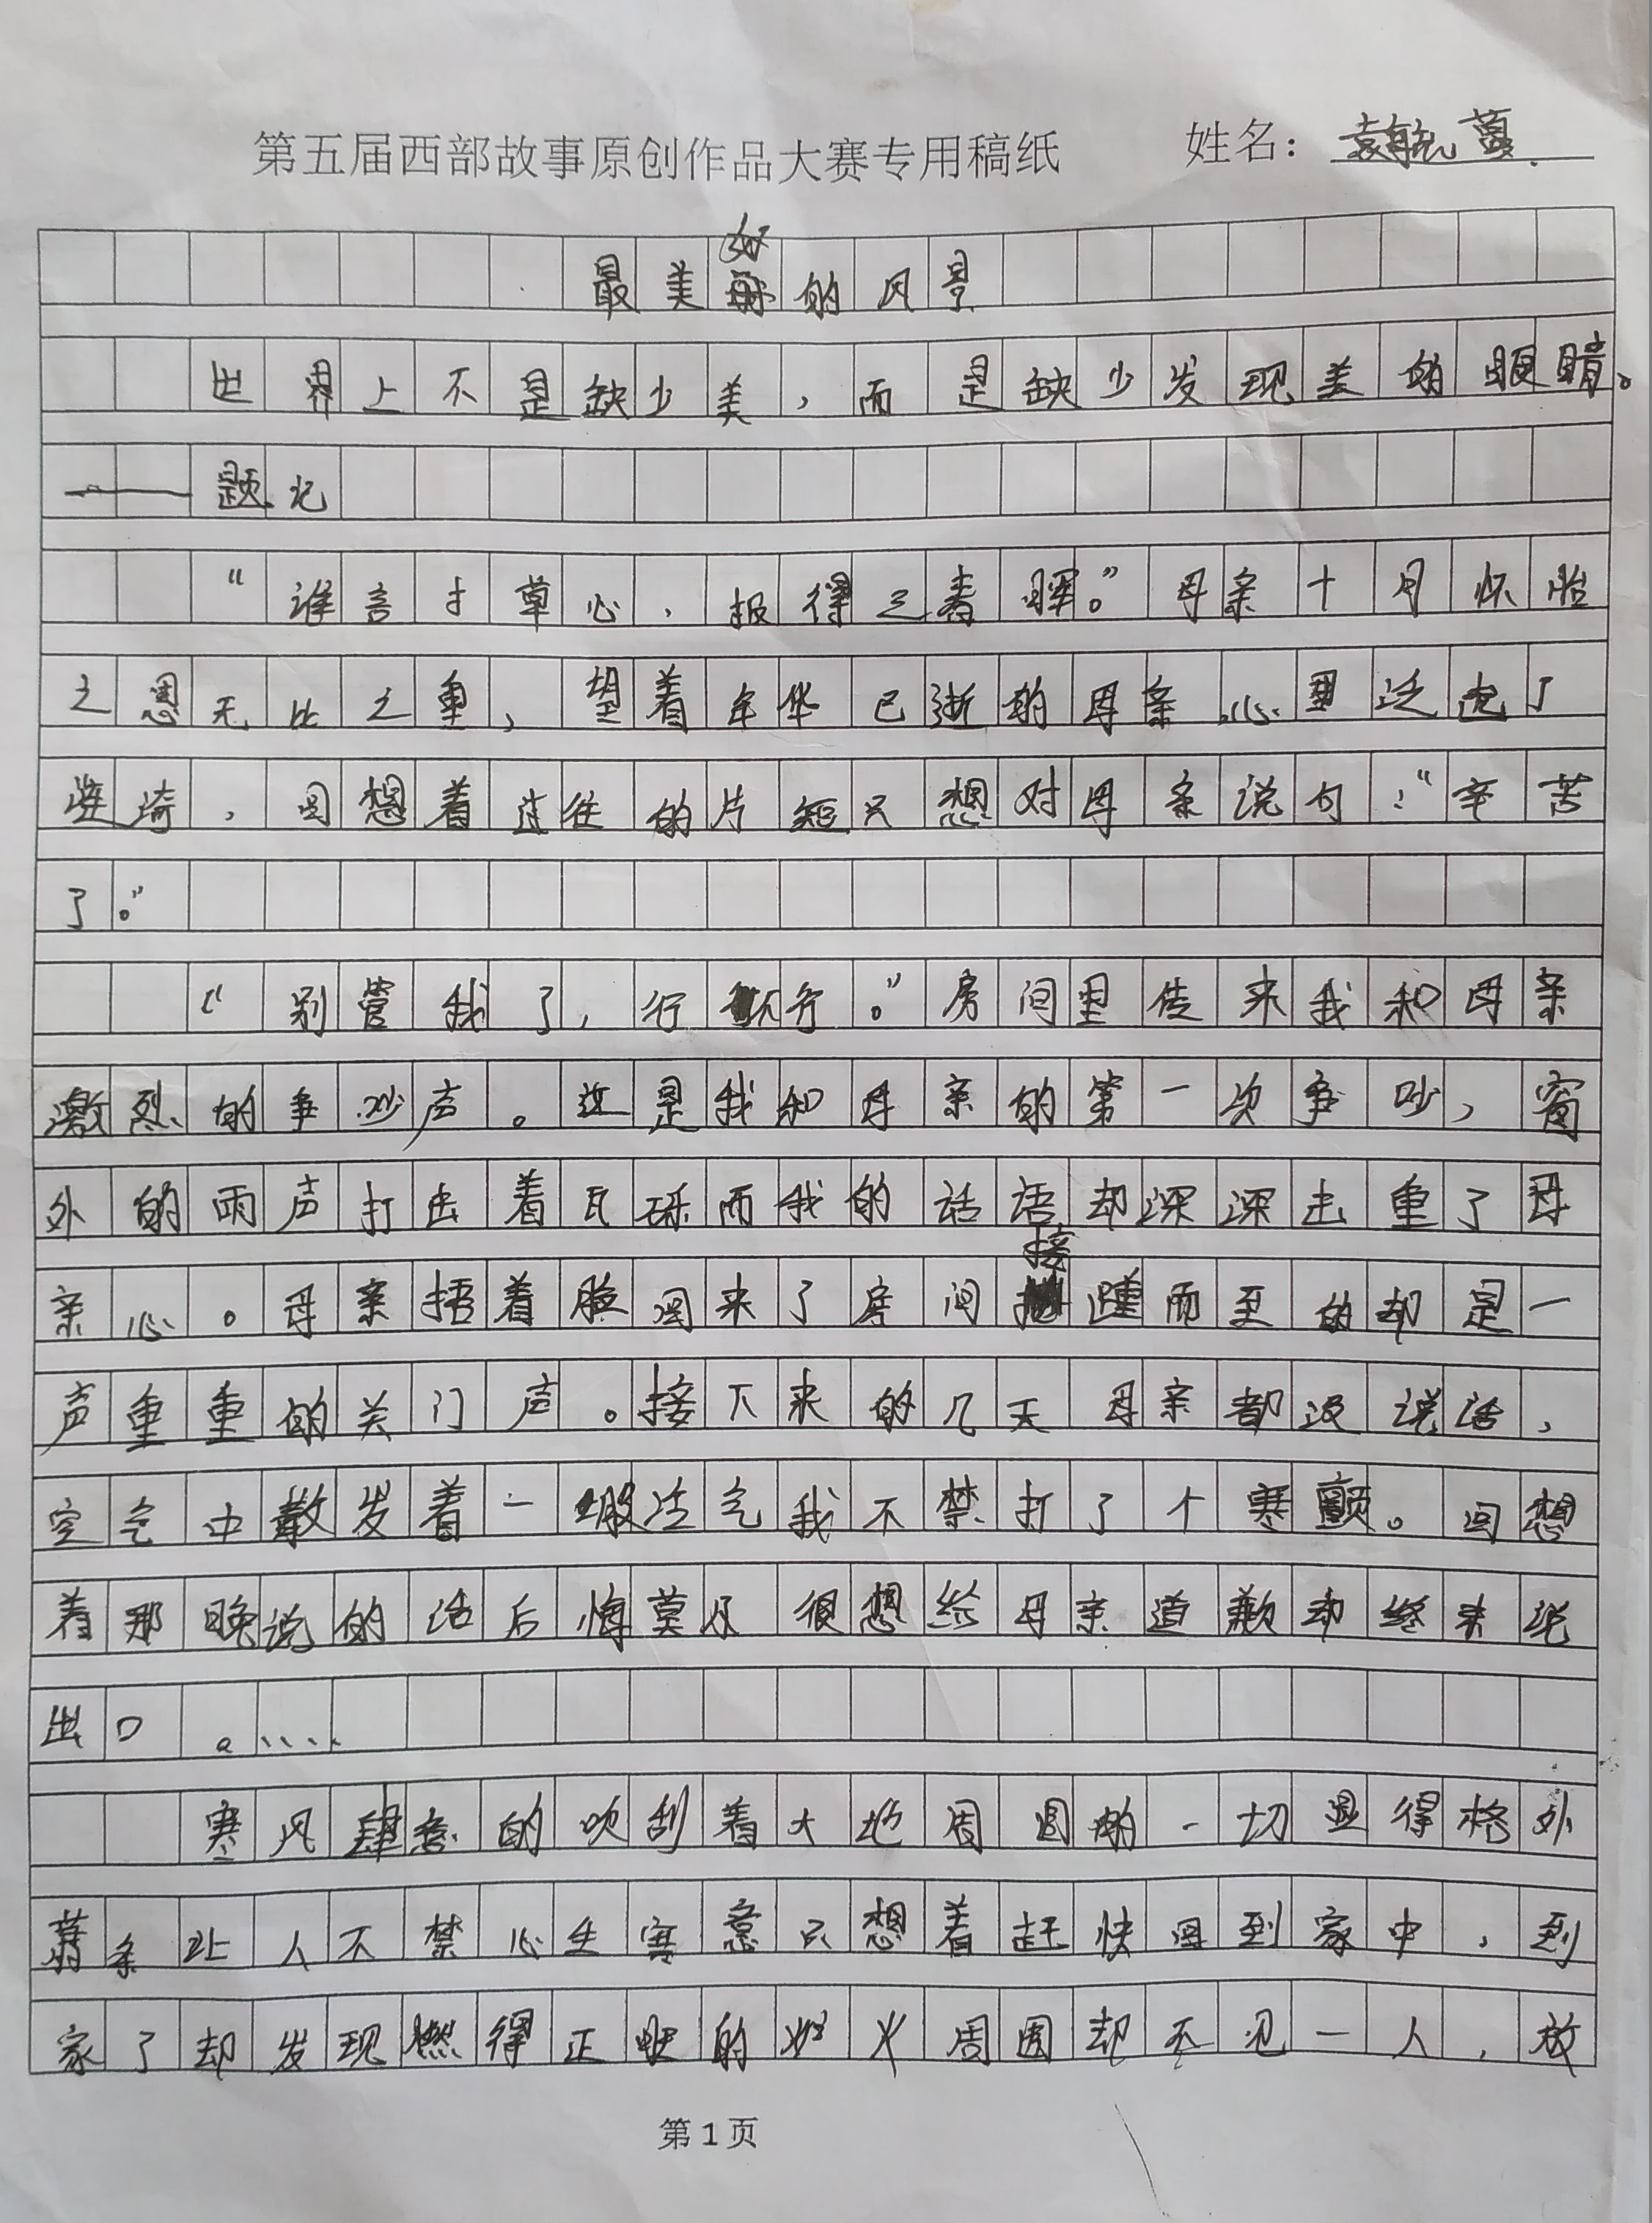 第五届西部故事原创作品大赛专用稿纸 姓名：袁毓蔓
好
最美的风景
世界上不是缺少美，而是缺少发现美的眼睛。
——题记
“谁言寸草心，报得之春晖。”母亲十月怀胎
之恩无比之重，望着年华已逝的母亲心里泛起了
涟漪，回想着过往的片短只想对母亲说句：“辛苦
了。”
“别管我了，行不行。”房间里传来我和母亲
激烈的争吵声。这是我和母亲的第一次争吵，窗
外的雨声打击着瓦砾而我的话语却深深击重了母
接
亲心。母亲捂着脸回来了房间踵而至的却是一
声重重的关门声。接下来的几天母亲都没说话，
空气中散发着一股冷气我不禁打了个寒颤。回想
着那晚说的话后悔莫及很想给母亲道歉却终未说
出口。……
寒风肆意的吹刮着大地周围的一切显得格外
萧条让人不禁心生寒意只想着赶快回到家中，到
家了却发现燃得正旺的炉火周围却不见一人，放
第1页